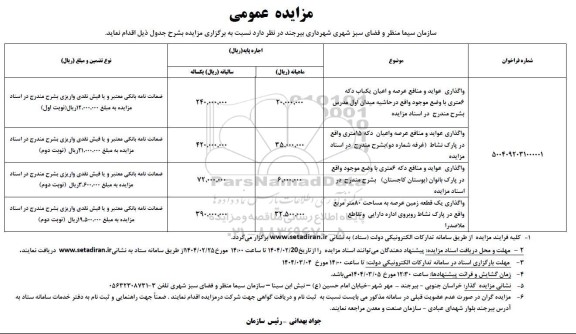 مزایده عمومی
سازمان سیما منظر و فضای سبز شهری شهرداری بیرجند در نظر دارد نسبت به برگزاری مزایده بشرح جدول ذیل اقدام نماید.
شماره فراخوان
موضوع
اجاره پایه(ریال)
ماهیانه (ریال)
سالیانه (ریال) یکساله
نوع تضمین و مبلغ (ریال)
۵۰۰۴۰۹۲۰۳۱۰۰۰۰۰۱
واگذاری عواید و منافع عرصه و اعیان یکباب دکه
۶متری با وضع موجود واقع در حاشیه میدان اول مدرس
بشرح مندرج در اسناد مزایده
۲۰,۰۰۰,۰۰۰
۲۴۰,۰۰۰,۰۰۰
ضمانت نامه بانکی معتبر و یا فیش نقدی واریزی بشرح مندرج در اسناد
مزایده به مبلغ ۱۲,۰۰۰,۰۰۰ریال(نوبت اول)
واگذاری عواید و منافع عرصه واعیان دکه ۱۵متری واقع
در پارک نشاط (غرفه شماره دو)بشرح مندرج در اسناد
مزایده
۳۵,۰۰۰,۰۰۰
۴۲۰,۰۰۰,۰۰۰
ضمانت نامه بانکی معتبر و یا فیش نقدی واریزی بشرح مندرج در اسناد
مزایده به مبلغ ۲۱,۰۰۰,۰۰۰ریال (نوبت دوم)
واگذاری عواید و منافع دکه ۶متری با وضع موجود واقع
در پارک بانوان (بوستان کاجستان) بشرح مندرج در
اسناد مزایده
۶,۰۰۰,۰۰۰
۷۲,۰۰۰,۰۰۰
ضمانت نامه بانکی معتبر و یا فیش نقدی واریزی بشرح مندرج در اسناد
مزایده به مبلغ ۳,۶۰۰,۰۰۰ریال (نوبت دوم)
واگذاری یک قطعه زمین عرصه به مساحت ۸۰متر مربع
واقع در پارک نشاط روبروی اداره دارایی وتقاطع
ملاصدرا
۳۲,۵۰۰,۰۰۰
۳۹۰,۰۰۰,۰۰۰
ضمانت نامه بانکی معتبر و یا فیش نقدی واریزی بشرح مندرج در اسناد
مزایده به مبلغ ۱۹,۵۰۰,۰۰۰ریال (نوبت دوم)
۱- کلیه فرایند مزایده از طریق سامانه تدارکات الکترونیکی دولت (ستاد) به نشانی www.setadiran.ir برگزار می‌گردد.
۲ – مهلت و محل دریافت اسناد مزایده: پیشنهاد دهندگان می‌توانند اسناد مزایده را از تاریخ ۱۴۰۴/۰۲/20 تا ساعت ۱۴:۰۰ مورخ ۱۴۰۴/۰۲/۲۵از طریق سامانه ستاد به نشانی www.setadiran.ir دریافت نمایند.
۳- مهلت بارگزاری اسناد در سامانه تدارکات الکترونیکی دولت: تا ساعت ۱۴:۰۰ مورخ ۱۴۰۴/۰۳/۰۴
۴- زمان گشایش و قرائت پیشنهادها: ساعت ۱۲:۳۰ مورخ ۱۴۰۴/۰۳/۰۵می‌باشد.
۵- نشانی مزایده گذار: خراسان جنوبی – بیرجند – مهر شهر -خیابان امام حسین (ع) – نبش ابن سینا – سازمان سیما منظر و فضای سبز شهری تلفن ۳-۰۵۶۳۲۳۰۸۷۳۱
۶- مزایده گران در صورت عدم عضویت قبلی در سامانه مذکور می بایست نسبت به ثبت نام و دریافت گواهی جهت شرکت درمزایده اقدام نمایند . ضمناً جهت راهنمایی و ثبت نام به دفتر خدمات سامانه ستاد به
آدرس بیرجند بلوار شهدای عبادی – سازمان صنعت و معدن مراجعه نمایند.
جواد بهدانی – رئیس سازمان